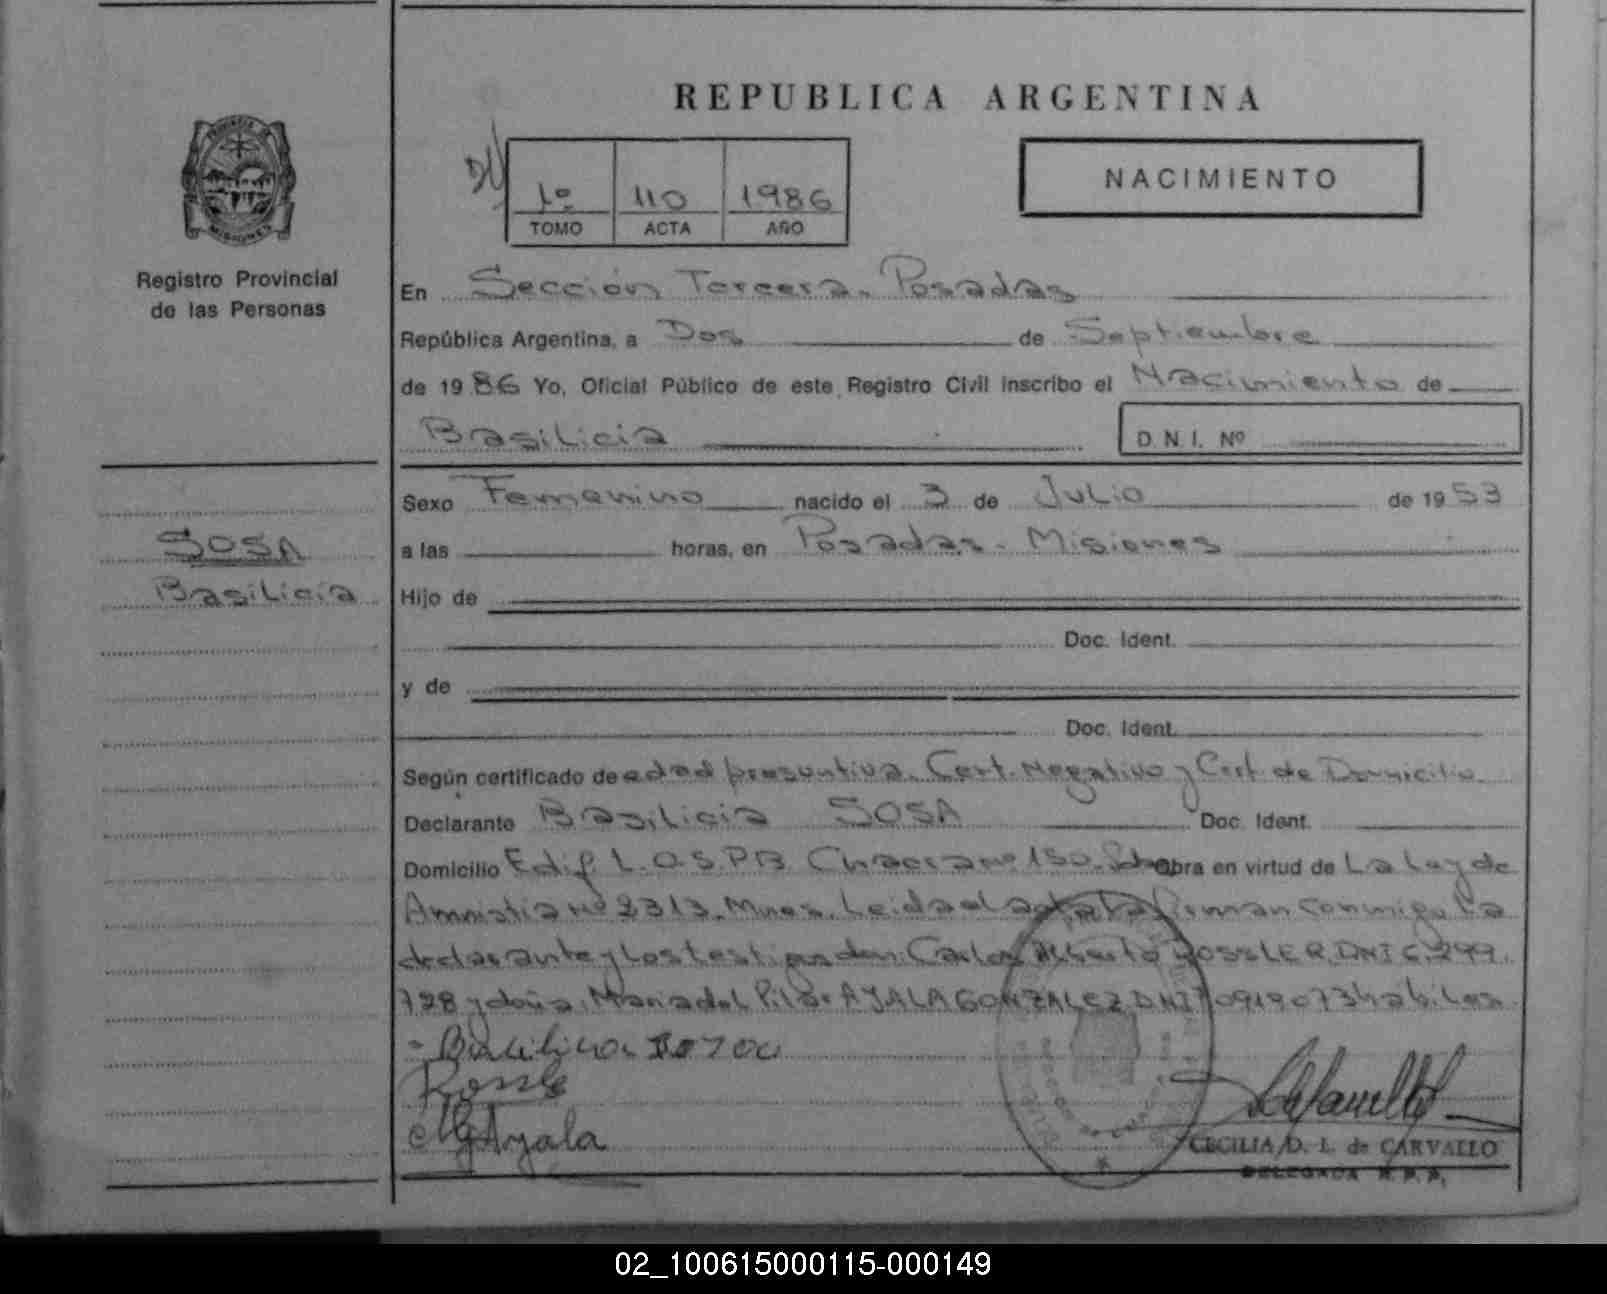 REPUBLICA ARGENTINA
PROVINCIA DE
MISIONES
Registro Provincial
de las Personas
1º 110 1986
TOMO ACTA AÑO
NACIMIENTO
En Sección Tercera. Posadas
República Argentina, a Dos de Septiembre
de 1986 Yo, Oficial Público de este Registro Civil inscribo el Nacimiento de
Basilicia D. N. I. Nº
SOSA
Basilicia
Sexo Femenino nacido el 3 de Julio de 1953
a las horas, en Posadas - Misiones
Hijo de
Doc. Ident.
y de
Doc. Ident.
Según certificado de edad presuntiva. Cert. Negativo y Cert de Domicilio
Declarante Basilicia SOSA Doc. Ident.
Domicilio Edif L.O.S. PB. Chacra nº 150. Obra en virtud de La Ley de
Amnistia Nº 2313. Mnes. Leida el acta la firman conmigo La
declarante y Los testigos don: Carlos Alberto ROSSLER. DNI 6.299.
728 y doña. Maria del Pilar AYALA GONZALEZ. DNI 09190734 habiles
Rossle
MGAyala
CECILIA D. L. de CARVALLO
DELEGADA R. P. P.
02_100615000115-000149